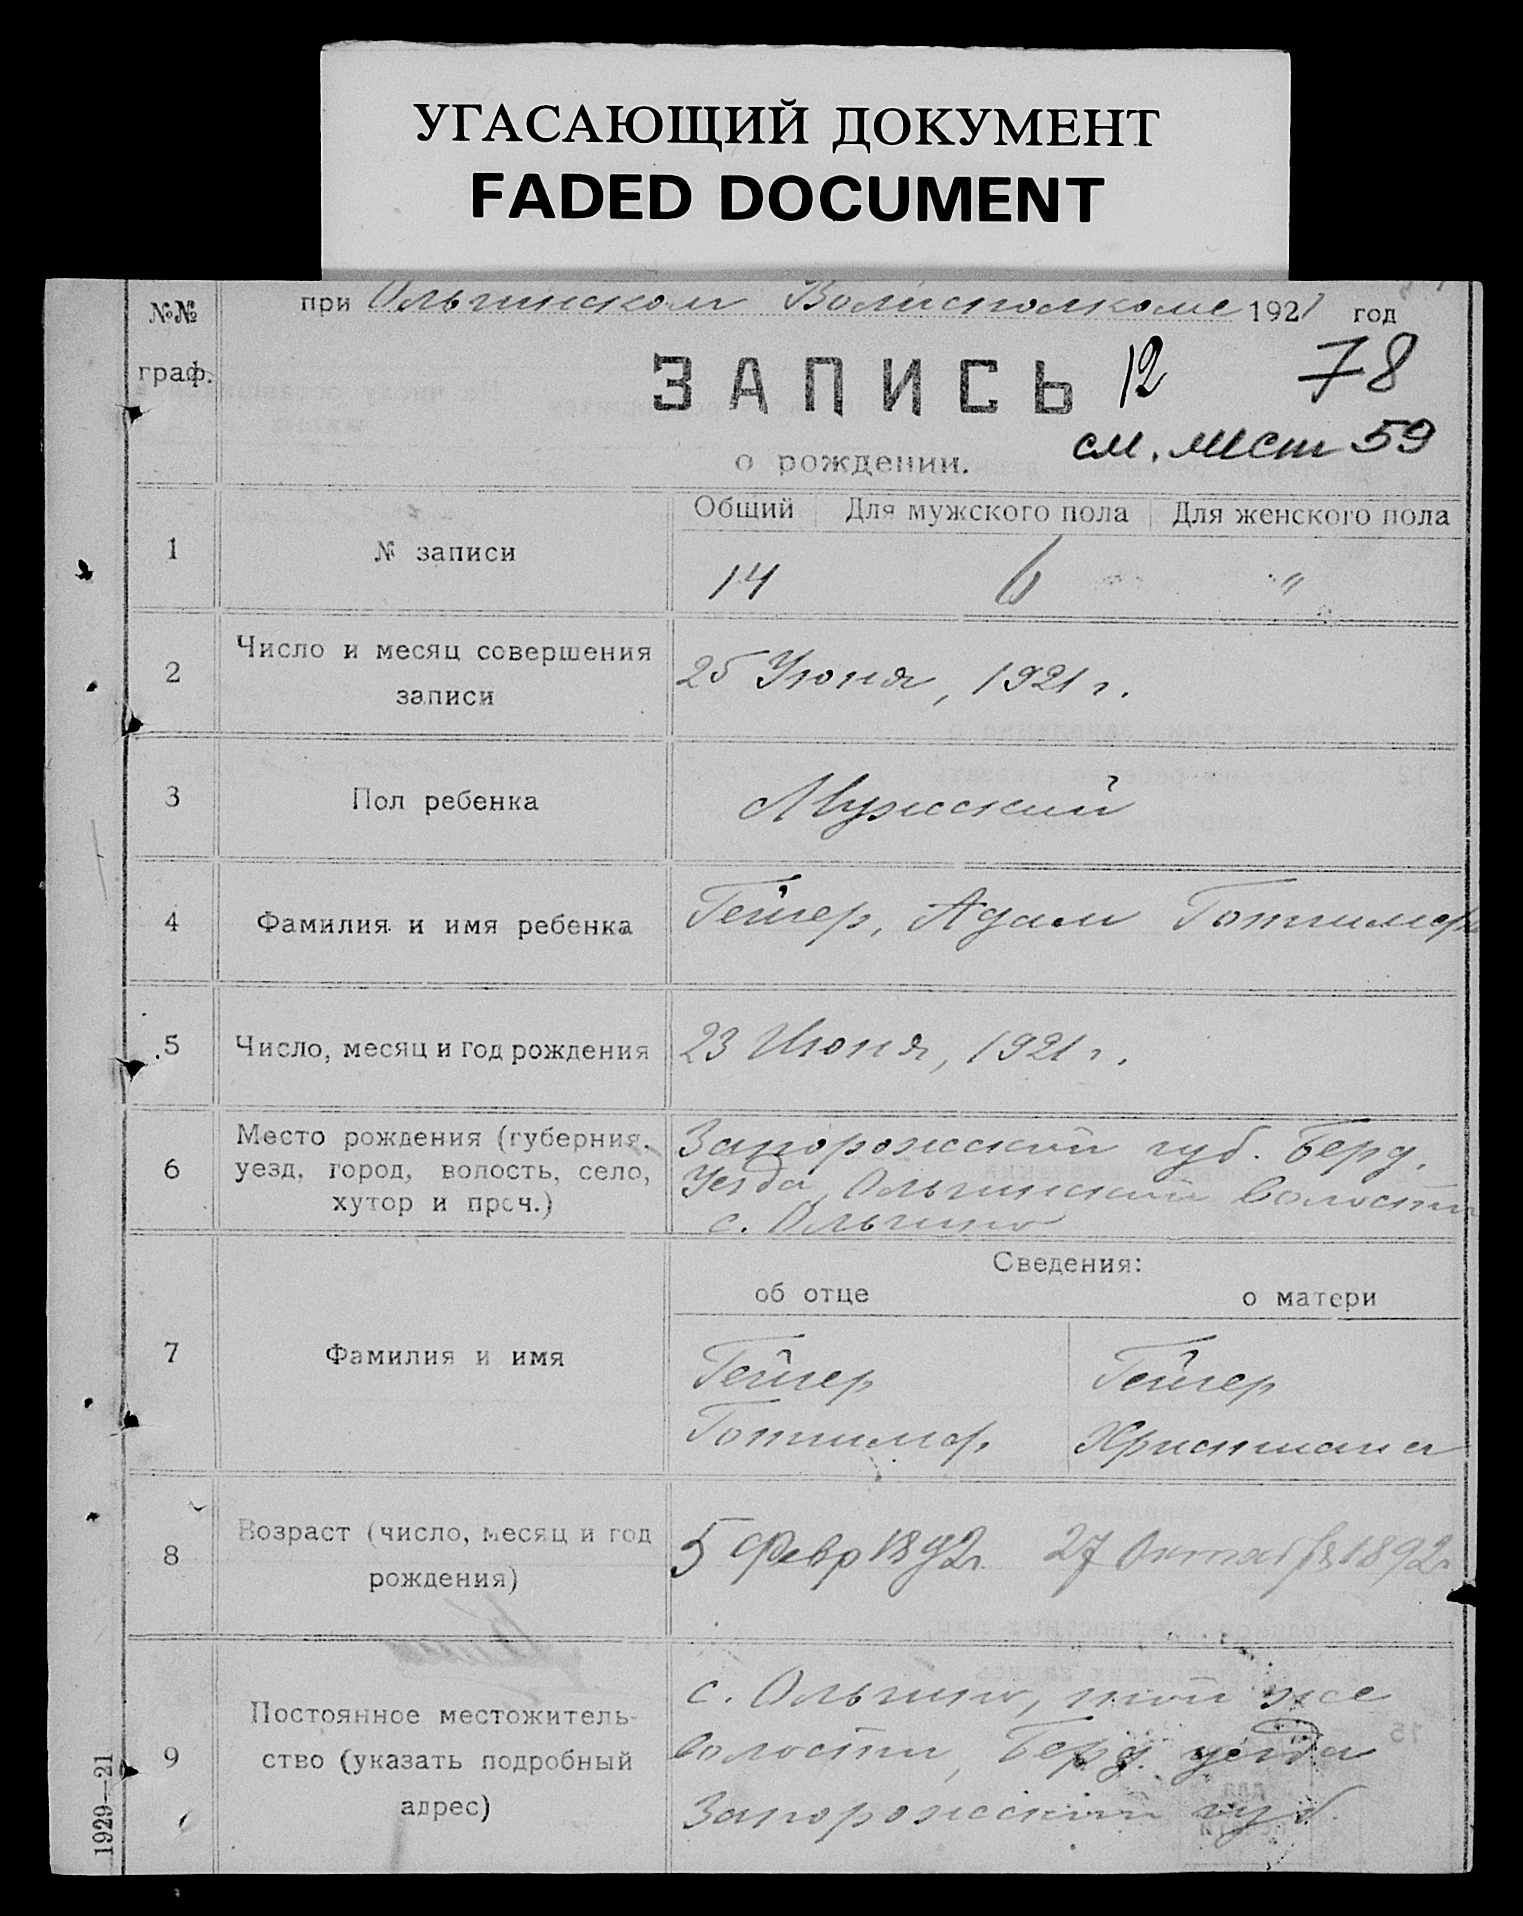 УГАСАЮЩИЙ ДОКУМЕНТ
FADED DOCUMENT
№№ граф.
при Ольгинском Волисполкоме 1921 год
ЗАПИСЬ 12 78
см. лист 59
о рождении.
Общий Для мужского пола Для женского пола
1 № записи 14 6 "
2 Число и месяц совершения записи 25 Июня, 1921 г.
3 Пол ребенка Мужской
4 Фамилия и имя ребенка Гейгер, Адам
5 Число, месяц и год рождения 23 Июня, 1921 г.
6 Место рождения (губерния, уезд, город, волость, село, хутор и проч.)
Запорожской губ. Берд.
Уезда, Ольгинской волости
с. Ольгино
Сведения:
об отце о матери
7 Фамилия и имя
Гейгер Гейгер
Готлиб Христиана
8 Возраст (число, месяц и год рождения) 5 Февр 1892 г. 27 Октября 1892 г
9 Постоянное местожитель-
ство (указать подробный
адрес)
с. Ольгино, той же
волости, Берд. уезда
Запорожской губ.
1929—21